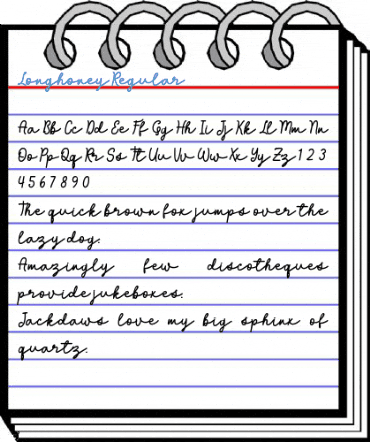 Longhoney Regular
Aa Bb Cc Dd Ee Ff Gg Hh Ii Jj Kk Ll Mm Nn
Oo Pp Qq Rr Ss Tt Uu Vv Ww Xx Yy Zz 1 2 3
4 5 6 7 8 9 0
The quick brown fox jumps over the
lazy dog.
Amazingly few discotheques
provide jukeboxes.
Jackdaws love my big sphinx of
quartz.